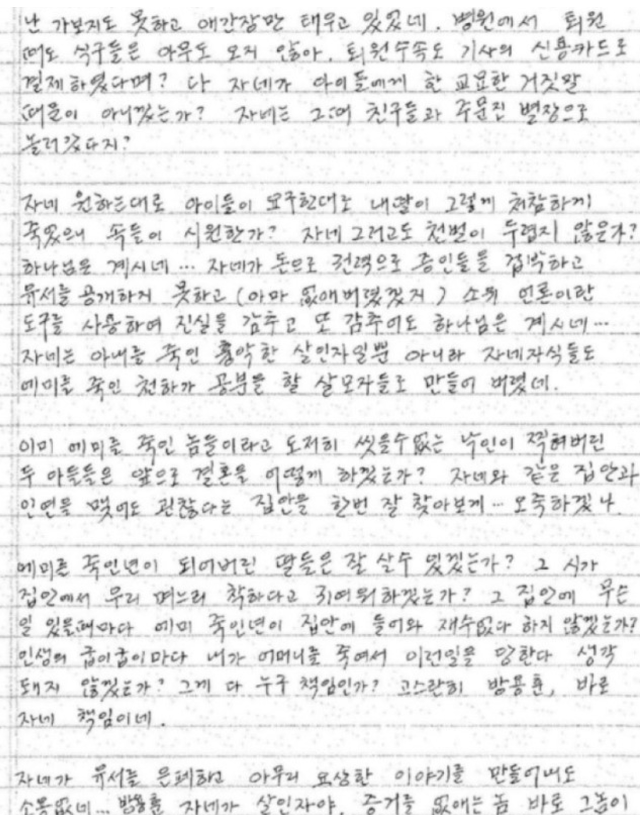 난 가보지도 못하고 애간장만 태우고 있었네. 병원에서 퇴원
때도 식구들은 아무도 오지 않아. 퇴원수속도 기사의 신용카드로
결제하였다며? 다 자네가 아이들에게 한 교묘한 거짓말
때문이 아니겠는가? 자네는 그때 친구들과 주문진 별장으로
놀러갔다지?
자네 원하는대로 아이들이 요구한대로 내딸이 그렇게 처참하게
죽었으니 속들이 시원한가? 자네 그러고도 천벌이 두렵지 않은가?
하나님은 계시네 … 자네가 돈으로 권력으로 증인들을 겁박하고
유서를 공개하지 못하고 (아마 없애버렸겠지) 소위 언론이란
도구를 사용하여 진실을 감추고 또 감추어도 하나님은 계시네 …
자네는 아내를 죽인 흉악한 살인자일뿐 아니라 자네자식들도
에미를 죽인 천하가 공분을 할 살모자들로 만들어 버렸네.
이미 에미를 죽인 놈들이라고 도저히 씻을수없는 낙인이 찍혀버린
두 아들들은 앞으로 결혼을 어떻게 하겠는가? 자네와 같은 집안과
인연을 맺어도 괜찮다는 집안을 한번 잘 찾아보게 … 오죽하겠나.
에미를 죽인년이 되어버린 딸들은 잘 살수 있겠는가? 그 시가
집안에서 우리 며느리 착하다고 귀여워하겠는가? 그 집안에 무슨
일 있을때마다 에미 죽인년이 집안에 들어와 재수없다 하지 않겠는가?
인생의 굽이굽이마다 내가 어머니를 죽여서 이런일을 당한다 생각
돼지 않겠는가? 그게 다 누구 책임인가? 고스란히 방용훈, 바로
자네 책임이네.
자네가 유서를 은폐하고 아무리 요상한 이야기를 만들어내도
소용없네 … 방용훈 자네가 살인자야. 증거를 없애는 놈 바로 그놈이